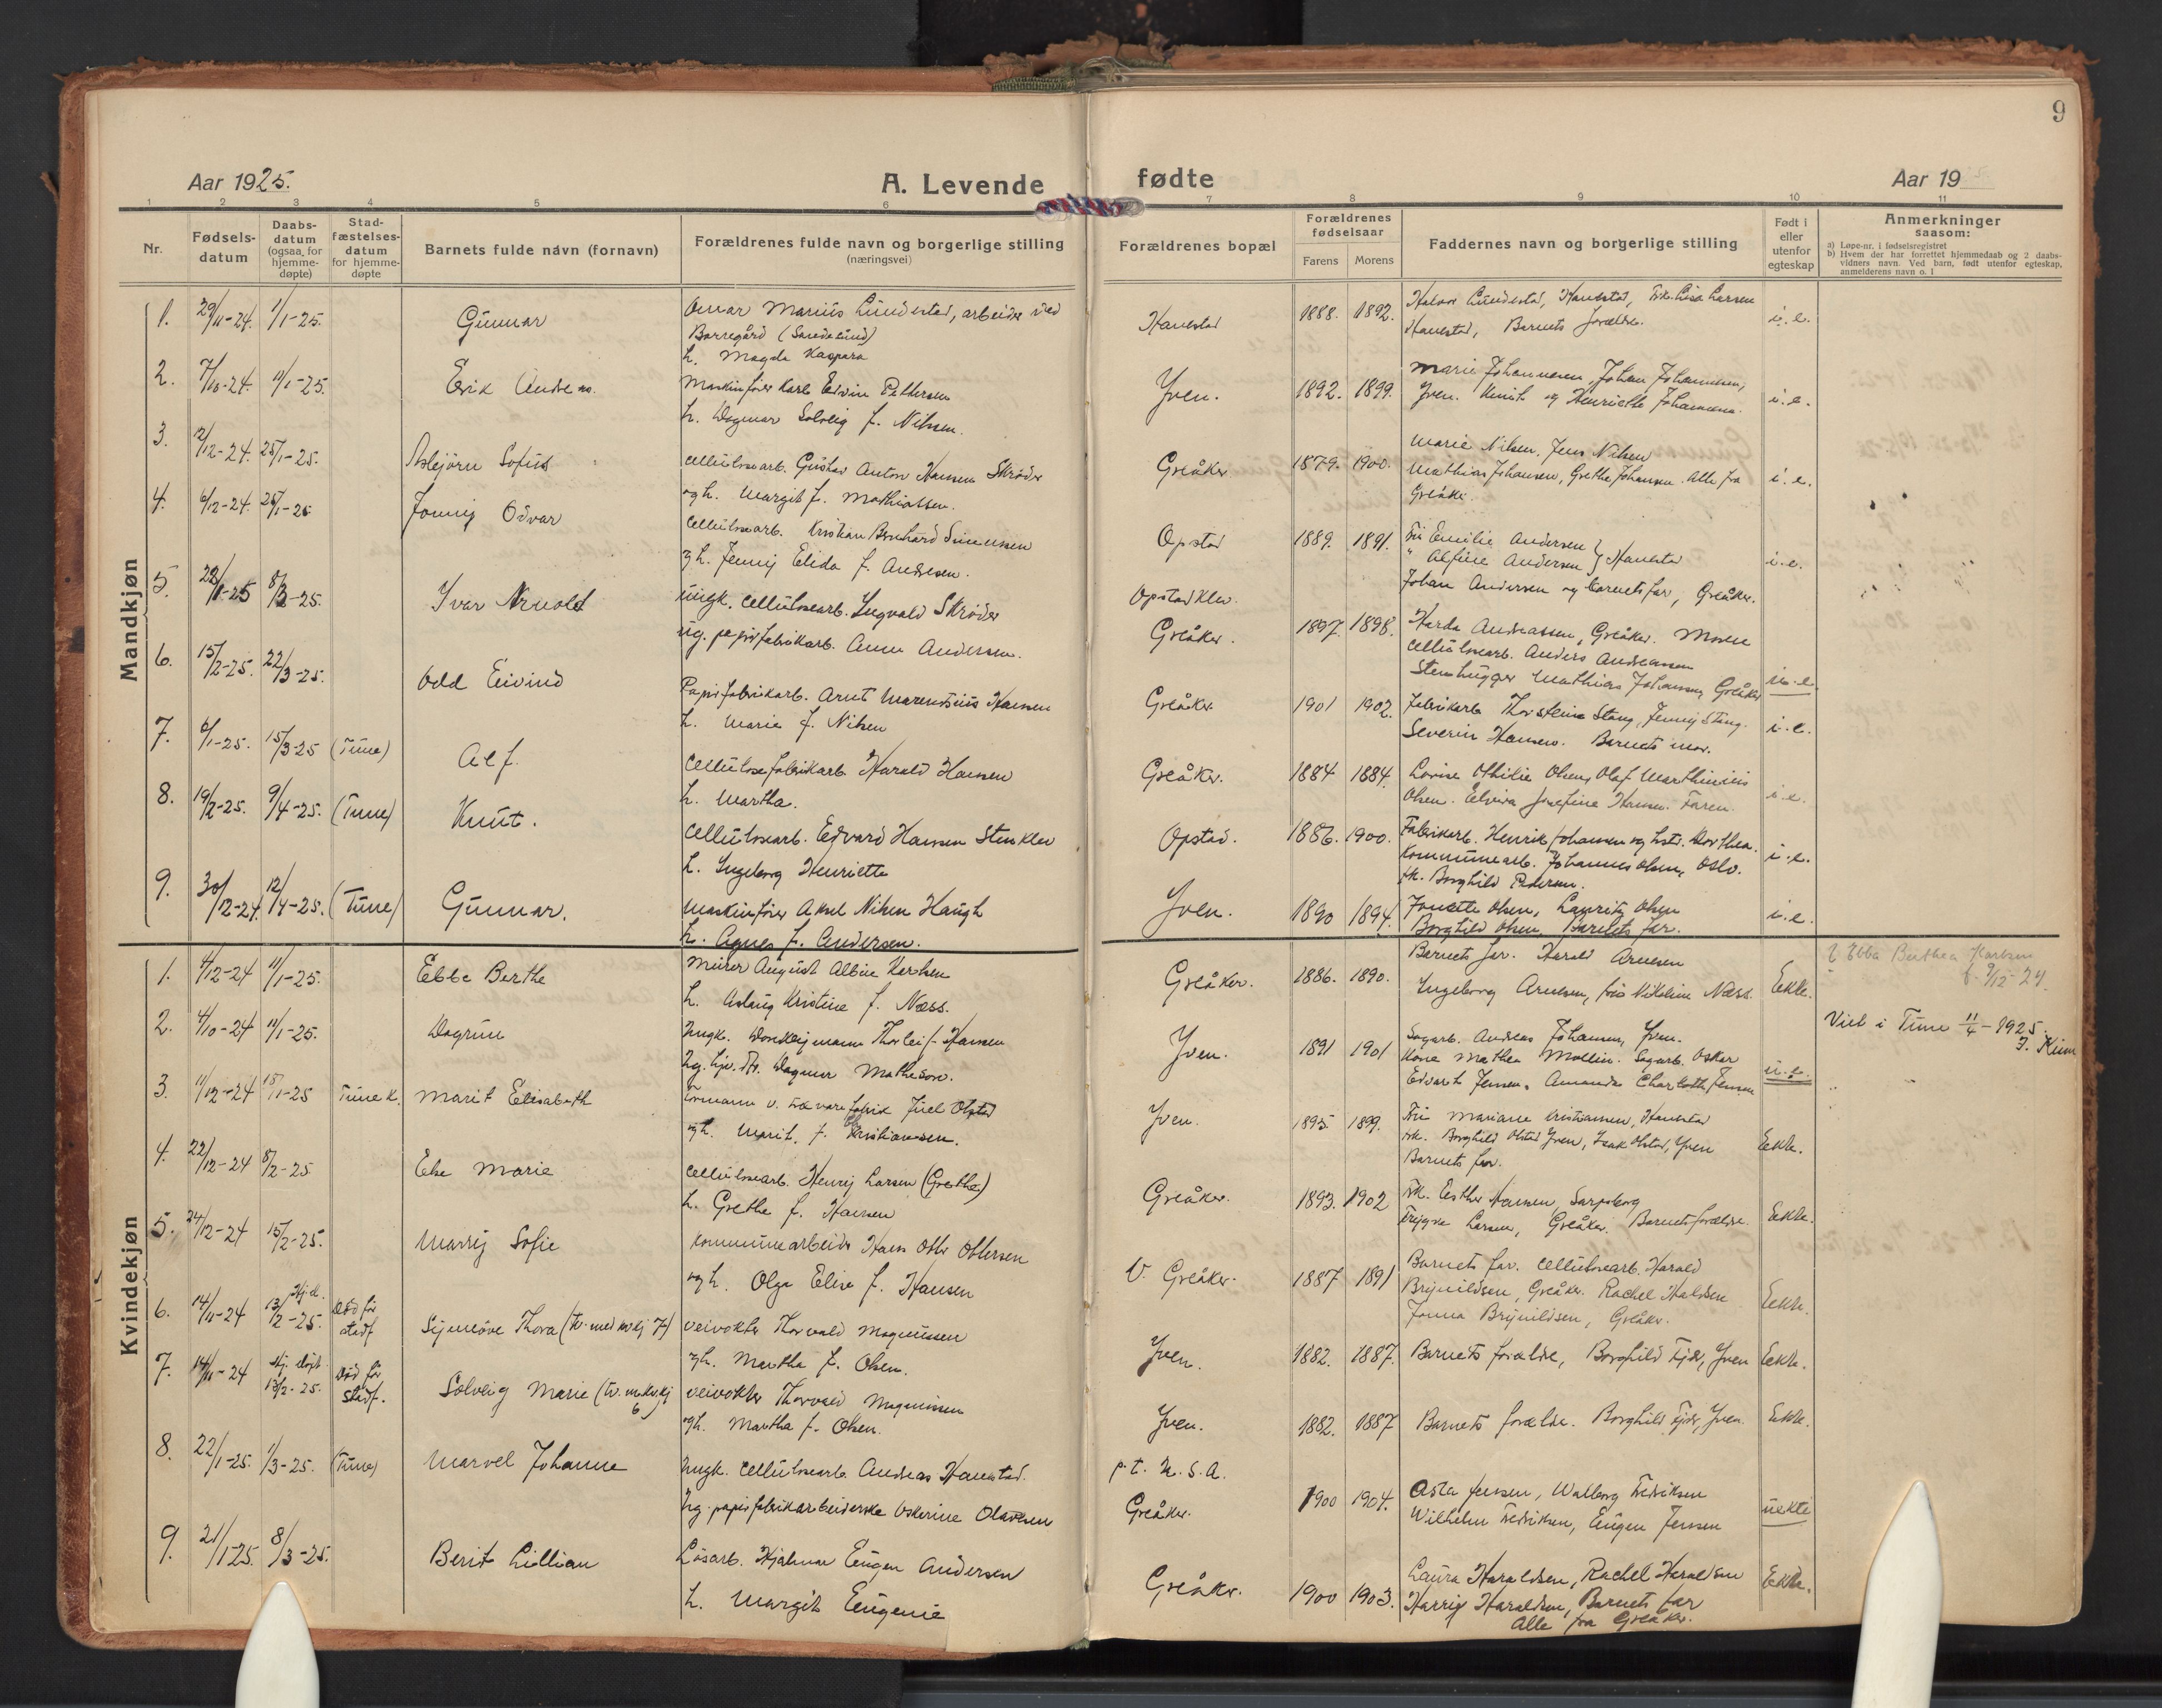 9
Aar 1925.
A. Levende fødte
Aar 19
1 2 3 4 5 6 7 8 9 10 11
Nr.
Fødsels-
datum
Daabs-
datum
(ogsaa for
hjemme-
døpte)
Stad-
fæstelses-
datum
for hjemme-
døpte
Barnets fulde navn (fornavn)
Forældrenes fulde navn og borgerlige stilling
(næringsvei)
Forældrenes bopæl
Forældrenes
fødselsaar
Farens Morens
Faddernes navn og borgerlige stilling
Født i
eller
utenfor
egteskap
Anmerkninger
saasom:
a) Løpe-nr. i fødselsregistret
b) Hvem der har forrettet hjemmedaab og 2 daabs-
vidners navn. Ved barn, født utenfor egteskap,
anmelderens navn o. l
Mandkjøn
1. 29/11-24. 1/1-25. Gunnar
Omar Marius Lundestad, arbeider ved
Borregård (Sandelund)
h. Magda Kaspara
Hanestad 1888. 1892.
Halvor Lundestad, Hanestad, frk. Lisa Larsen
Hanestad, Barnets forældre. i. e.
2. 7/10-24. 11/1-25. Erik Andreas.
Maskinfører Karl Edvin Pettersen
h. Dagmar Solveig f. Nilsen.
Yven. 1892. 1899.
Marie Johannesen, Johan Johannesen,
Yven. og Henriette Johannesen. i. e.
3. 12/12-24. 25/1-25. Asbjørn Sofus
Cellulosearb. Gustav Anton Hansen Skrøder
og h. Margit f. Mathiassen.
Greåker 1879. 1900.
Marie Nilsen, Jens Nilsen
Mathias Johansen, Grethe Johansen. Alle fra
Greåker. i. e.
4. 6/12-24. 26/1-25 Jonny Odvar
Cellulosearb. Kristian Bernhard Simensen
og h. Jenny Elida f. Andresen.
Opstad 1889. 1891.
Fru Emilie Andersen
" Alfine Andersen } Hanestad
Johan Andersen og barnets far, Greåker. i. e.
5. 22/1-25 8/3-25. Ivar Arnold
Ungk. Cellulosearb. Ingvald Skrøder
Ug. papirfabrikarb. Anna Andersen.
Opstadklev.
Greåker. 1897. 1898.
Harda Andreassen, Greåker. Moren
Cellulosearb. Anders Andreassen
Stenhugger Mathias Johansen, Greåker u. e.
6. 15/2-25. 22/3-25. Odd Eivind
Papirfabrikarb. Arnt Marentsius Hansen
h. Maria f. Nilsen
Greåker 1901 1902.
Fabrikarb Thorsteine Stang, Jenny Stang.
Severin Hansen. Barnets mor. i. e.
7. 6/1-25. 15/3-25 (Tune) Alf.
Cellulosefabrikarb. Harald Hansen
h. Martha.
Greåker. 1884 1884.
Lovise Othilie Olsen, Olaf Marthinius
Olsen. Elvira Josefine Hansen. Faren. i. e.
8. 19/2-25. 9/4-25. (Tune) Knut.
Cellulosearb. Edvard Hansen Stenklev
h. Ingeborg Henriette
Opstad. 1886. 1900.
Fabrikarb. Henrik Johansen og hst. Dorthea.
Kommunearb. Johannes Olsen, Oslo.
frk. Borghild Pedersen. i. e.
9. 30/12-24. 12/4-25. (Tune) Gunnar.
Maskinfører Aksel Nilsen Haugh
h. Agnes f. Andersen.
Yven. 1890 1894.
Jonette Olsen, Lauritz Olsen
Borghild Olsen, Barnets far. i. e.
Kvindekjøn
1. 4/12-24 11/1-25. Ebba Berthe
Murer August Albin Karlsen
h. Aslaug Kristine f. Næss.
Greåker. 1886. 1890.
Barnets far. Harald Arnesen
Ingeborg Arnesen, frk Nikoline Næss. Ekte.
Ebba Berthea Karlsen
f. 9/12-24.
2. 4/10-24 11/1-25. Dagrun
Ungk. Thorleif Hansen
Ug. tjp. Dagmar Mathesen.
Yven. 1891 1901
Sagarb. Andreas Johansen, Yven.
Kone Mathea Mollin. Sagarb. Oskar
Edvart Jensen. Amanda Charlotte Jensen u. e.
Viet i Tune 11/4-1925.
3. 11/12-24 18/1-25 Tune k. Marit Elisabeth
Formann v. trævarefabrik Juel Olstad
og h. Marit, f. Kristiansen.
Yven. 1895 1899.
Fru Mariane Kristiansen, Hanestad
frk. Borghild Olstad Yven, Isak Olstad, Yven
Barnets far. Ekte.
4. 22/12-24 8/2-25 Else Marie
Cellulosearb. Henry Larsen (Grethe)
h. Grethe f. Hansen
Greåker. 1893. 1902
Frk. Esther Hansen, Sarpsborg
Trygve Larsen, Greåker. Barnets forældre. Ekte.
5. 24/12-24 15/2-25. Marry Sofie
Kommunearbeider Hans Otto Ottersen
og h. Olga Elise f. Hansen
V. Greåker. 1887 1891
Barnets far. Cellulosearb. Harald
Brynildsen, Greåker. Rachel Haldsen
Jonna Brynildsen, Greåker. Ekte.
6. 14/11-24 Hj.d. 13/2-25. Død før stadf
Synnøve Thora (tv. med kv.kj 7)
Veivokter Thorvald Magnussen
og h. Martha f. Olsen.
Yven. 1882. 1887.
Barnets forældre, Borghild Fjeld, Yven Ekte.
7. 14/11-24 Hj. døpt 13/2-25. Død før stadf.
Solveig Marie (tv. m. kv.kj 6)
Veivokter Thorvald Magnussen
og h. Martha f. Olsen.
Yven. 1882. 1887
Barnets forældre. Borghild Fjeld, Yven. Ekte.
8. 22/1-25. 1/3-25. (Tune) Marvel Johanne
Ungk. Cellulosearb. Andreas Hanestad.
Ug. papirfabrikarbeiderske Oskarine Olavesen
p.t. U.S.A.
Greåker. 1900 1904.
Asta Jensen, Walborg Fredriksen
Wilhelm Fredriksen, Eugen Jensen uekte
9. 21/1-25. 8/3-25. Berit Lillian
Løsarb. Hjalmar Eugen Andersen
h. Margit Eugenie
Greåker. 1900 1903.
Laura Haraldsen, Rachel Haraldsen
Harry Haraldsen, Barnets far
Alle fra Greåker. Ekte.